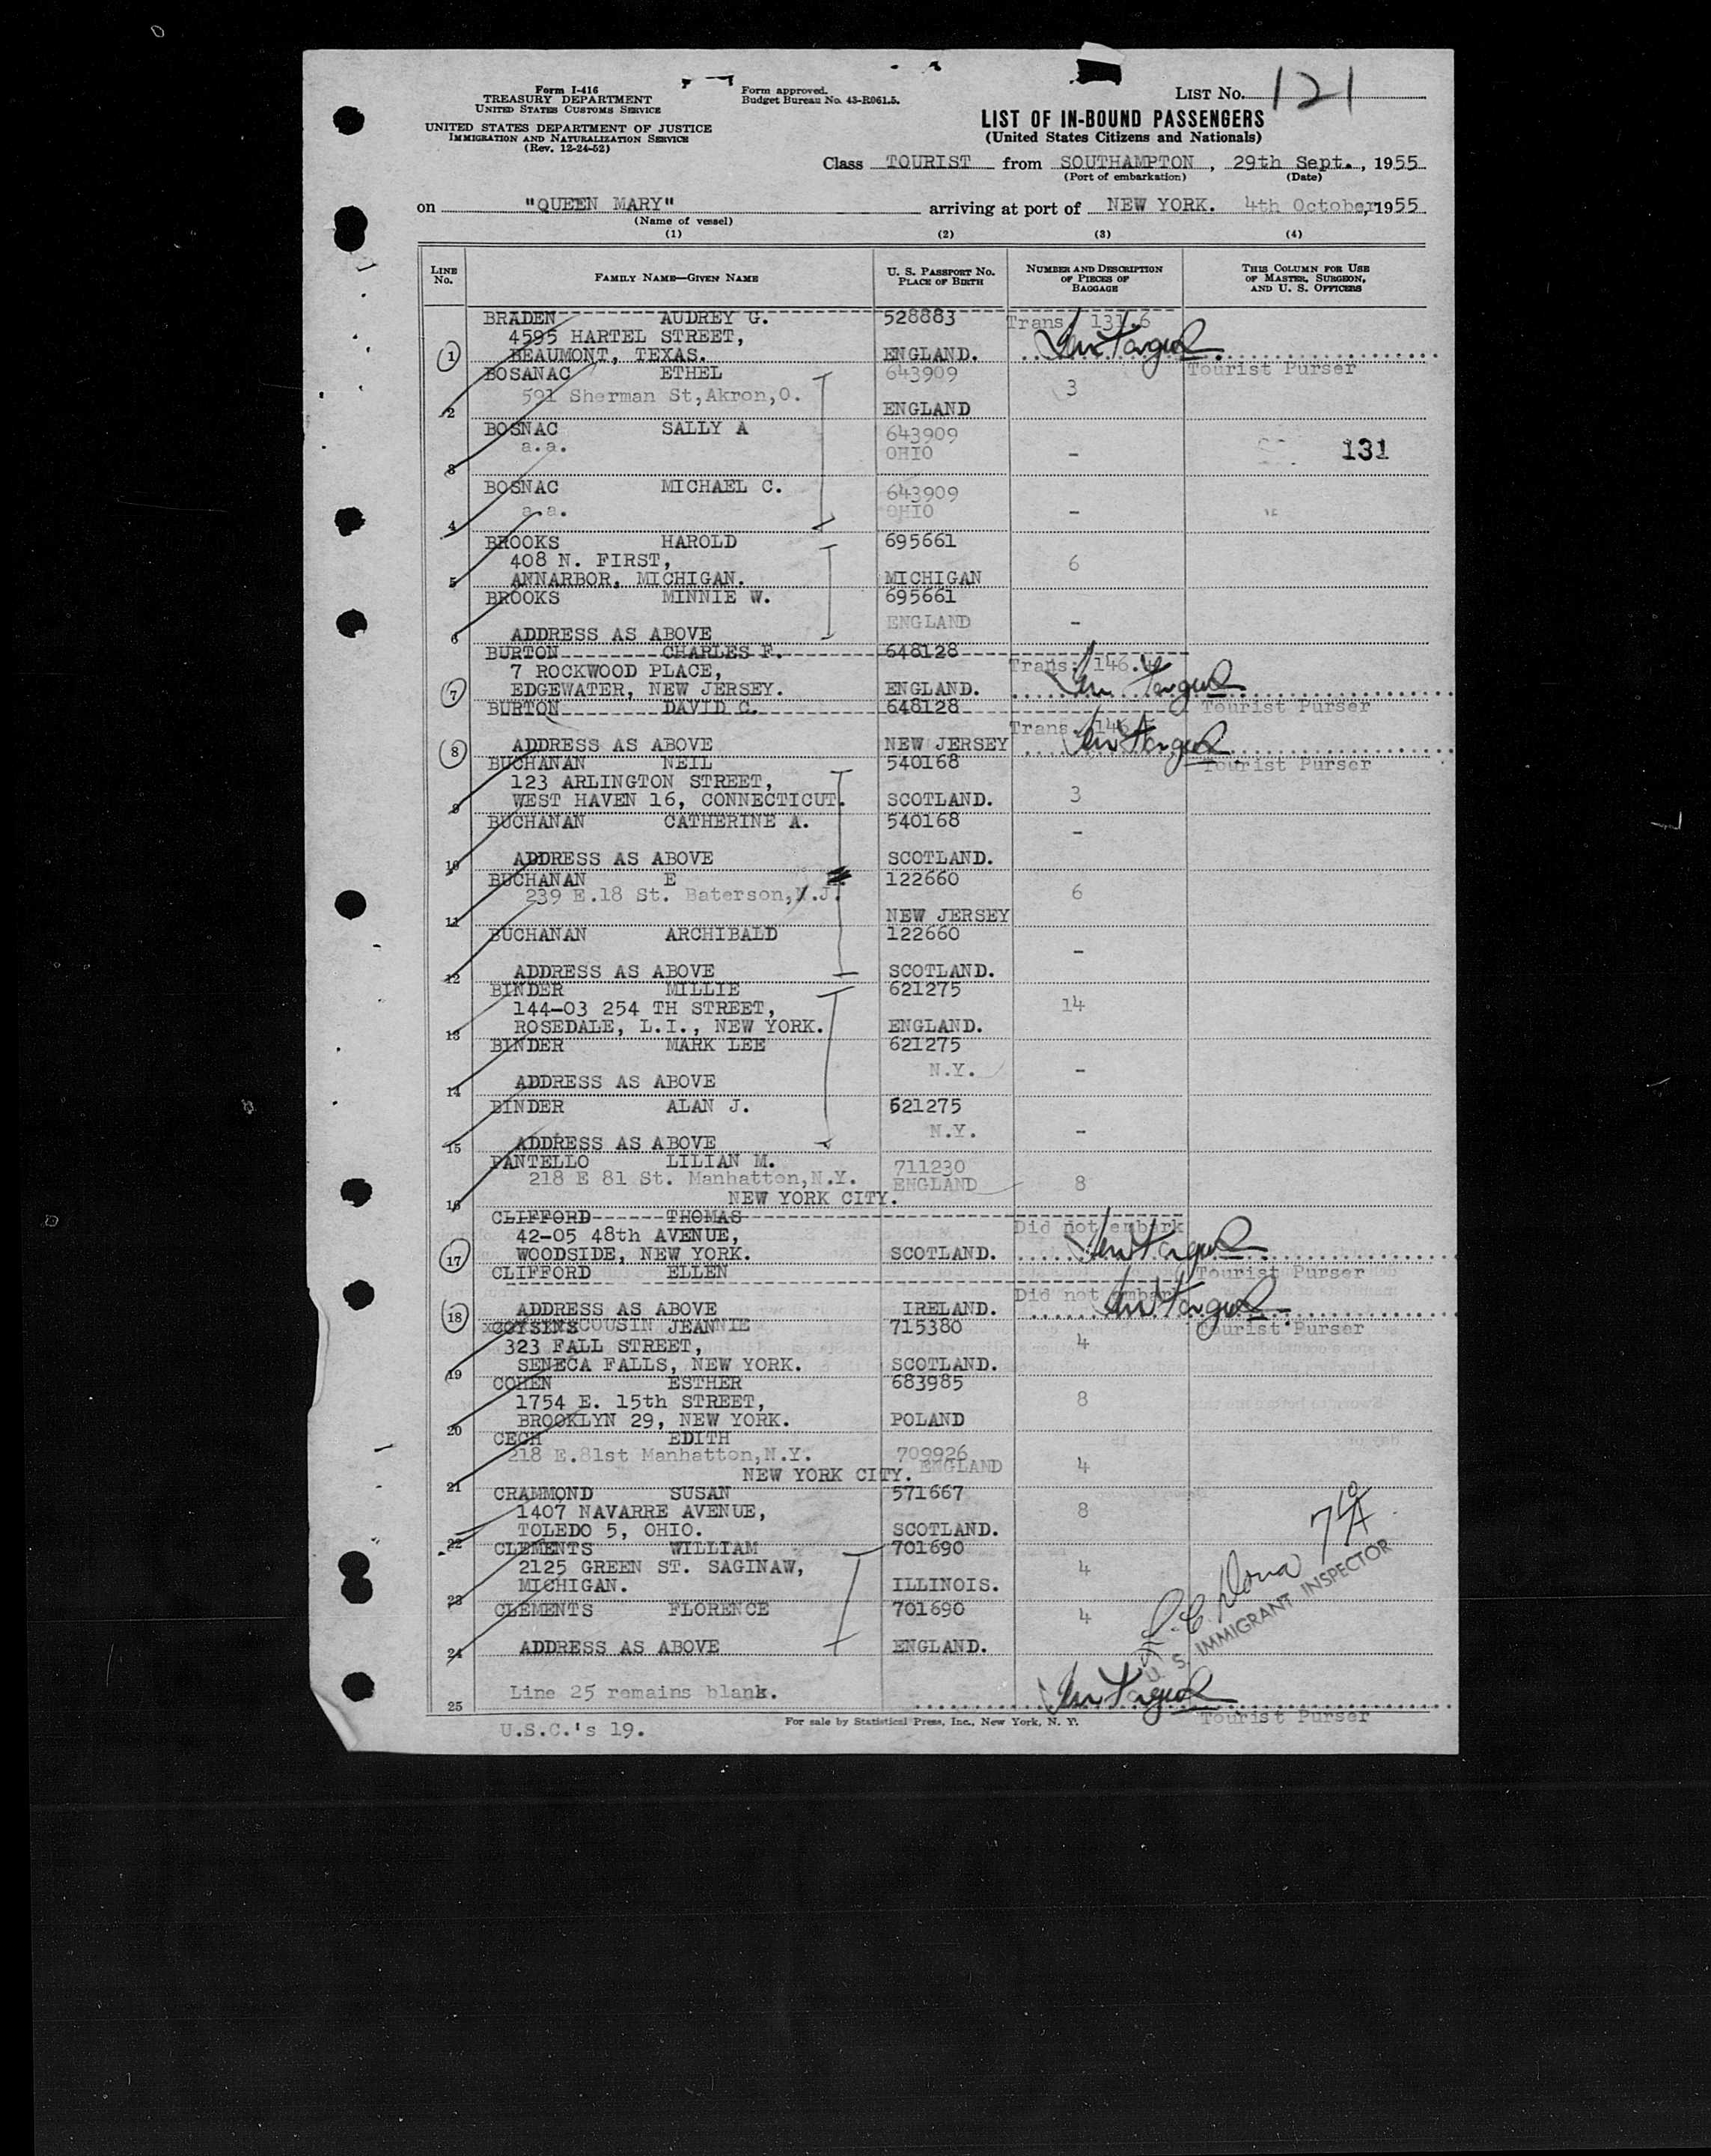 Form I-416
TREASURY DEPARTMENT
UNITED STATES CUSTOMS SERVICE
UNITED STATES DEPARTMENT OF JUSTICE
IMMIGRATION AND NATURALIZATION SERVICE
(Rev. 12-24-52)
Form approved.
Budget Bureau No. 43-R061.5.
LIST No. 121
LIST OF IN-BOUND PASSENGERS
(United States Citizens and Nationals)
Class TOURIST from SOUTHAMPTON, 29th Sept., 1955
(Port of embarkation) (Date)
on "QUEEN MARY" arriving at port of NEW YORK. 4th October, 1955
(Name of vessel)
(1) (2) (3) (4)
LINE No. FAMILY NAME—GIVEN NAME U. S. PASSPORT No. PLACE OF BIRTH NUMBER AND DESCRIPTION OF PIECES OF BAGGAGE THIS COLUMN FOR USE OF MASTER, SURGEON, AND U. S. OFFICERS
BRADEN AUDREY G. 528883 Trans 131.6
4595 HARTEL STREET,
1 BEAUMONT, TEXAS. ENGLAND.
Tourist Purser
BOSANAC ETHEL 643909 3
591 Sherman St,Akron,O.
2 ENGLAND
BOSNAC SALLY A 643909
a.a. OHIO - 131
3
BOSNAC MICHAEL C. 643909
a.a. OHIO -
4
BROOKS HAROLD 695661
408 N. FIRST, 6
5 ANNARBOR, MICHIGAN. MICHIGAN
BROOKS MINNIE W. 695661
ENGLAND -
6 ADDRESS AS ABOVE
BURTON CHARLES F. 648128 Trans. 146.4
7 ROCKWOOD PLACE,
7 EDGEWATER, NEW JERSEY. ENGLAND.
Tourist Purser
BURTON DAVID C. 648128 Trans. 146.5
8 ADDRESS AS ABOVE NEW JERSEY
Tourist Purser
BUCHANAN NEIL 540168
123 ARLINGTON STREET,
9 WEST HAVEN 16, CONNECTICUT. SCOTLAND. 3
BUCHANAN CATHERINE A. 540168 -
10 ADDRESS AS ABOVE SCOTLAND.
BUCHANAN E 122660
239 E.18 St. Baterson,N.J. 6
11 NEW JERSEY
BUCHANAN ARCHIBALD 122660 -
12 ADDRESS AS ABOVE SCOTLAND.
BINDER MILLIE 621275
144-03 254 TH STREET, 14
13 ROSEDALE, L.I., NEW YORK. ENGLAND.
BINDER MARK LEE 621275
N.Y. -
14 ADDRESS AS ABOVE
BINDER ALAN J. 621275
N.Y. -
15 ADDRESS AS ABOVE
PANTELLO LILIAN M. 711230
218 E 81 St. Manhatton,N.Y. ENGLAND 8
16 NEW YORK CITY.
CLIFFORD THOMAS Did not embark
42-05 48th AVENUE,
17 WOODSIDE, NEW YORK. SCOTLAND.
Tourist Purser
CLIFFORD ELLEN Did not embark
18 ADDRESS AS ABOVE IRELAND.
Tourist Purser
COYSINS COUSIN JEANNIE 715380
323 FALL STREET, 4
19 SENECA FALLS, NEW YORK. SCOTLAND.
COHEN ESTHER 683985
1754 E. 15th STREET, 8
20 BROOKLYN 29, NEW YORK. POLAND
CECH EDITH 709926
218 E.81st Manhatton,N.Y. ENGLAND 4
21 NEW YORK CITY.
CRAMMOND SUSAN 571667
1407 NAVARRE AVENUE, 8
22 TOLEDO 5, OHIO. SCOTLAND.
CLEMENTS WILLIAM 701690
2125 GREEN ST. SAGINAW, 4
23 MICHIGAN. ILLINOIS.
CLEMENTS FLORENCE 701690 4
24 ADDRESS AS ABOVE ENGLAND.
U. S. IMMIGRANT INSPECTOR
25 Line 25 remains blank.
Tourist Purser
U.S.C.'s 19.
For sale by Statistical Press, Inc., New York, N. Y.